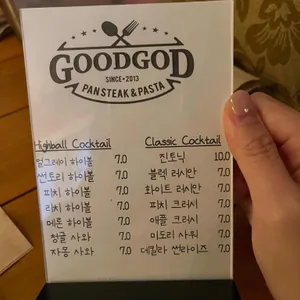 GOODGOD
SINCE • 2013
PAN STEAK & PASTA
Highball Cocktail
얼그레이 하이볼 7.0
썬토리 하이볼 7.0
피치 하이볼 7.0
리치 하이볼 7.0
메론 하이볼 7.0
청귤 사와 7.0
자몽 사와 7.0
Classic Cocktail
진토닉 10.0
블랙 러시안 7.0
화이트 러시안 7.0
피치 크러시 7.0
애플 크러시 7.0
미도리 사워 7.0
데킬라 썬라이즈 7.0